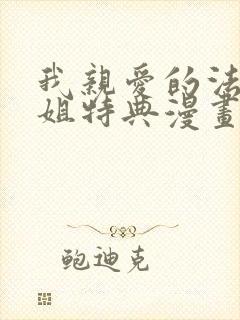 我親愛的法
姐特典漫畫
鮑迪克